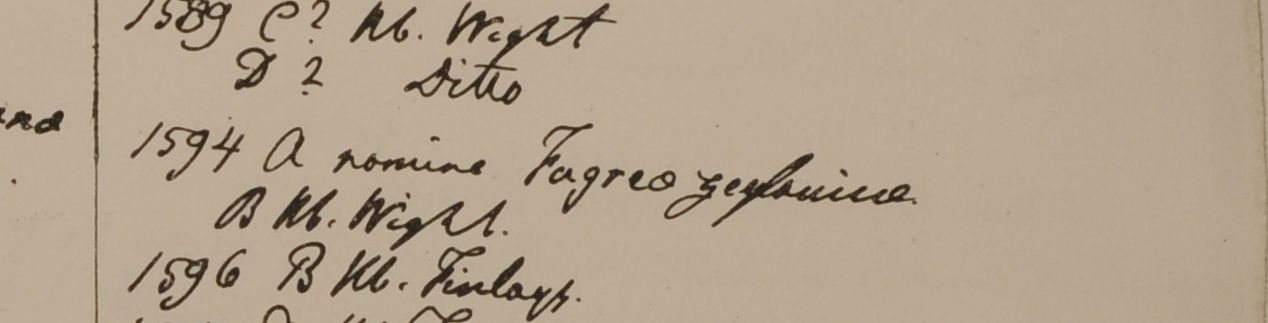 1589 C? Hb. Wight
D? Ditto
1594 A nomine Fagrea zeylanica.
B Hb. Wight.
1596 B Hb. Finlays.